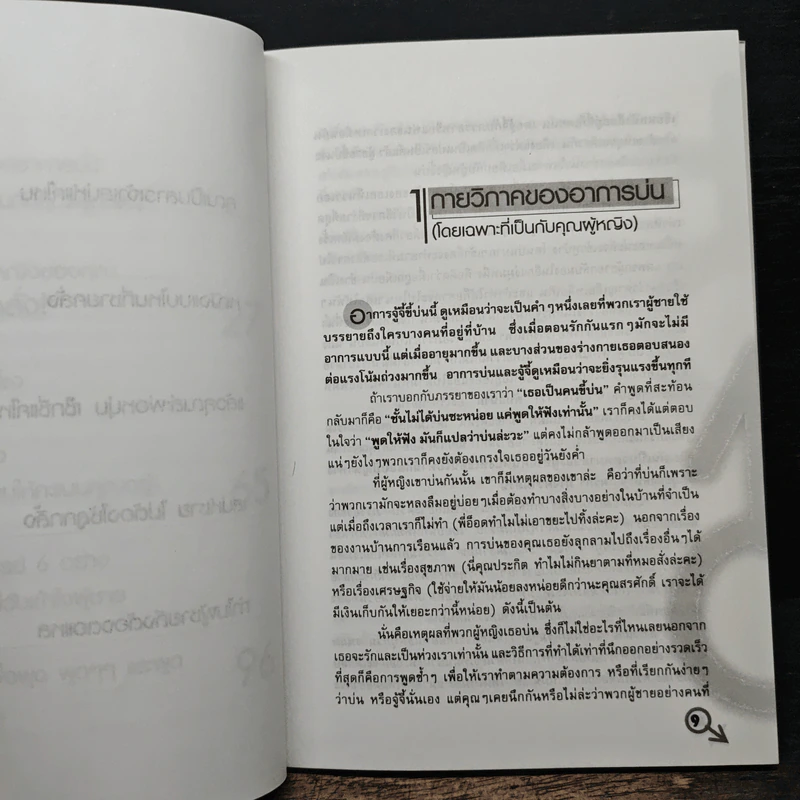 1 กายวิภาคของอาการบ่น
(โดยเฉพาะที่เป็นกับคุณผู้หญิง)
อาการจู้จี้ขี้บ่นนี้ ดูเหมือนว่าจะเป็นคำๆหนึ่งเลยที่พวกเราผู้ชายใช้
บรรยายถึงใครบางคนที่อยู่ที่บ้าน ซึ่งเมื่อตอนรักกันแรกๆมักจะไม่มี
อาการแบบนี้ แต่เมื่ออายุมากขึ้น และบางส่วนของร่างกายเธอตอบสนอง
ต่อแรงโน้มถ่วงมากขึ้น อาการบ่นและจู้จี้ดูเหมือนว่าจะยิ่งรุนแรงขึ้นทุกที
ถ้าเราบอกกับภรรยาของเราว่า “เธอเป็นคนขี้บ่น” คำพูดที่สะท้อน
กลับมาก็คือ “ชั้นไม่ได้บ่นซะหน่อย แค่พูดให้ฟังเท่านั้น” เราก็คงได้แต่ตอบ
ในใจว่า “พูดให้ฟัง มันก็แปลว่าบ่นล่ะวะ” แต่คงไม่กล้าพูดออกมาเป็นเสียง
แน่ๆยังไงๆพวกเราก็คงยังต้องเกรงใจเธออยู่วันยังค่ำ
ที่ผู้หญิงเขาบ่นกันนั้น เขาก็มีเหตุผลของเขาล่ะ คือว่าที่บ่นก็เพราะ
ว่าพวกเรามักจะหลงลืมอยู่บ่อยๆเมื่อต้องทำบางสิ่งบางอย่างในบ้านที่จำเป็น
แต่เมื่อถึงเวลาเราก็ไม่ทำ (พี่อ๊อดทำไมไม่เอาขยะไปทิ้งล่ะคะ) นอกจากเรื่อง
ของงานบ้านการเรือนแล้ว การบ่นของคุณเธอยังลุกลามไปถึงเรื่องอื่นๆได้
มากมาย เช่นเรื่องสุขภาพ (นี่คุณประกิต ทำไมไม่กินยาตามที่หมอสั่งล่ะคะ)
หรือเรื่องเศรษฐกิจ (ใช้จ่ายให้มันน้อยลงหน่อยดีกว่านะคุณสรศักดิ์ เราจะได้
มีเงินเก็บกันให้เยอะกว่านี้หน่อย) ดังนี้เป็นต้น
นั่นคือเหตุผลที่พวกผู้หญิงเธอบ่น ซึ่งก็ไม่ใช่อะไรที่ไหนเลยนอกจาก
เธอจะรักและเป็นห่วงเราเท่านั้น และวิธีการที่ทำได้เท่าที่นึกออกอย่างรวดเร็ว
ที่สุดก็คือการพูดซ้ำๆ เพื่อให้เราทำตามความต้องการ หรือที่เรียกกันง่ายๆ
ว่าบ่น หรือจู้จี้นั่นเอง แต่คุณๆเคยนึกกันหรือไม่ล่ะว่าพวกผู้ชายอย่างคนที่
9